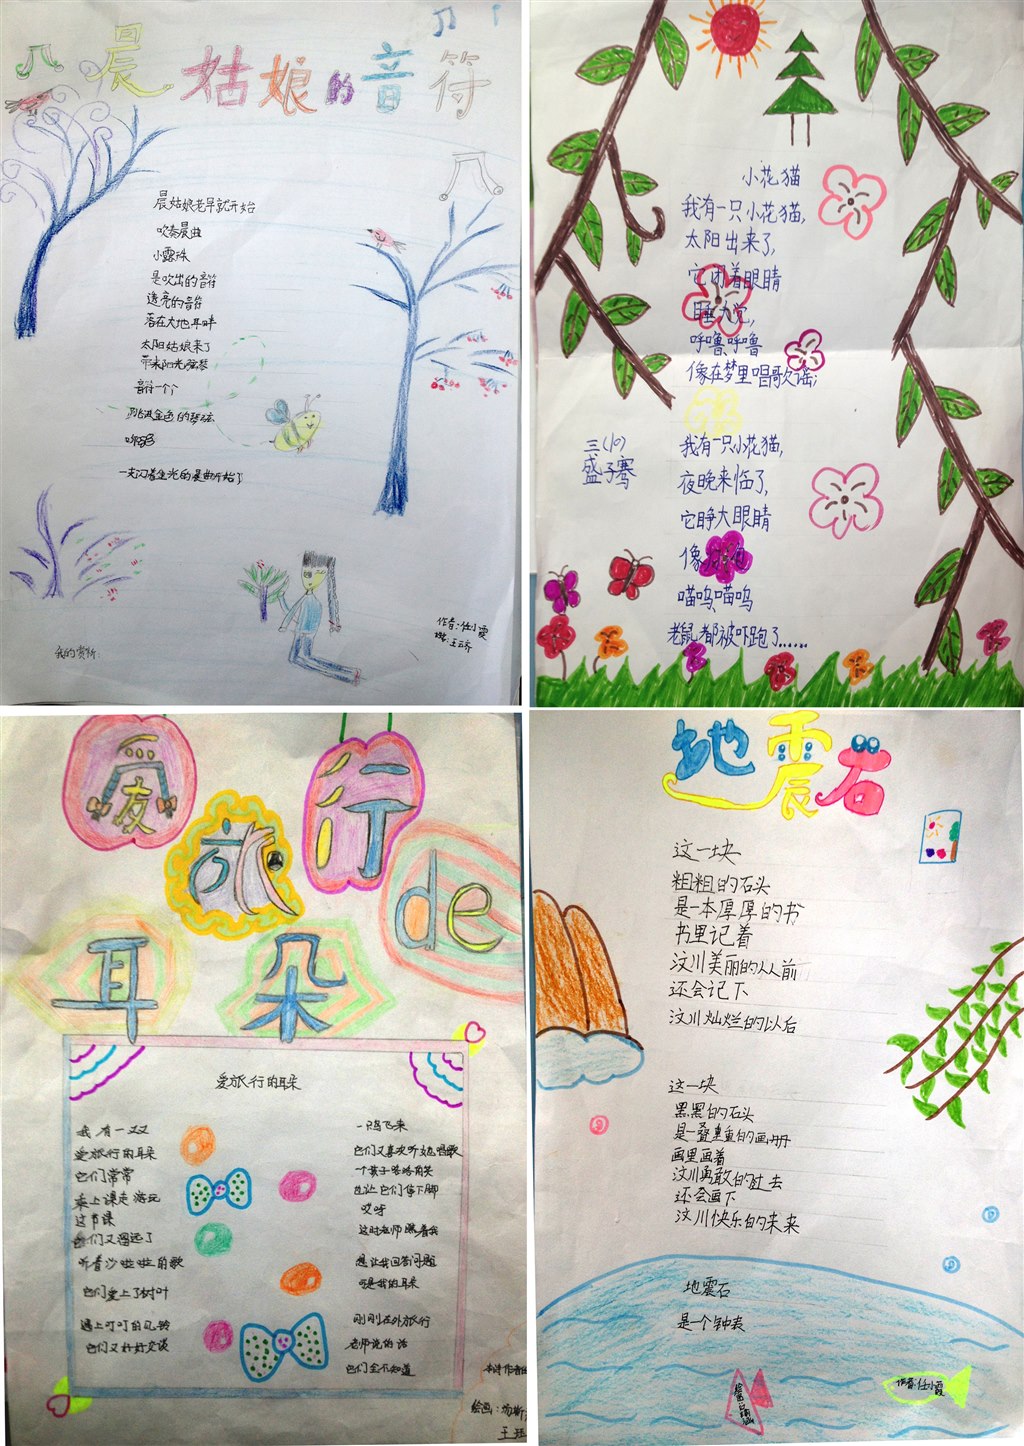 晨姑娘的音符
晨姑娘老早就开始
吹奏晨曲
小露珠
是吹出的音符
透亮的音符
落在大地耳畔
太阳姑娘来了
带来阳光强琴
音符一个个
跳进金色的琴弦
一支闪着金光的晨曲开始了
作者:任小霞
王云齐
我的赏析:
小花猫
我有一只小花猫,
太阳出来了,
它闭着眼睛
睡大觉,
呼噜,呼噜
像在梦里唱歌谣;
三(10)
盛子骞
我有一只小花猫,
夜晚来临了,
它睁大眼睛
像
喵呜,喵呜
老鼠都被吓跑了……
爱旅行de
耳朵
爱旅行的耳朵
我有一双
爱旅行的耳朵
它们常常
乘上课走游玩
这节课
它们又溜远了
听着沙啦啦的歌
它们爱上了树叶
遇上叮叮的风铃
它们又好好交谈
一只鸟飞来
它们又喜欢听她唱歌
一个孩子哈哈的笑
也让它们停下脚
哎呀
这时老师瞧着我
想让我回答问题
可是我的耳朵
刚刚在外旅行
老师说的话
它们全不知道
本诗作者
绘画:
地震石
这一块
粗粗的石头
是一本厚厚的书
书里记着
汶川美丽的从前
还会记下
汶川灿烂的以后
这一块
黑黑的石头
是一叠重重的画册
画里画着
汶川勇敢的过去
还会画下
汶川快乐的未来
地震石
是一个钟表
作者:任小霞